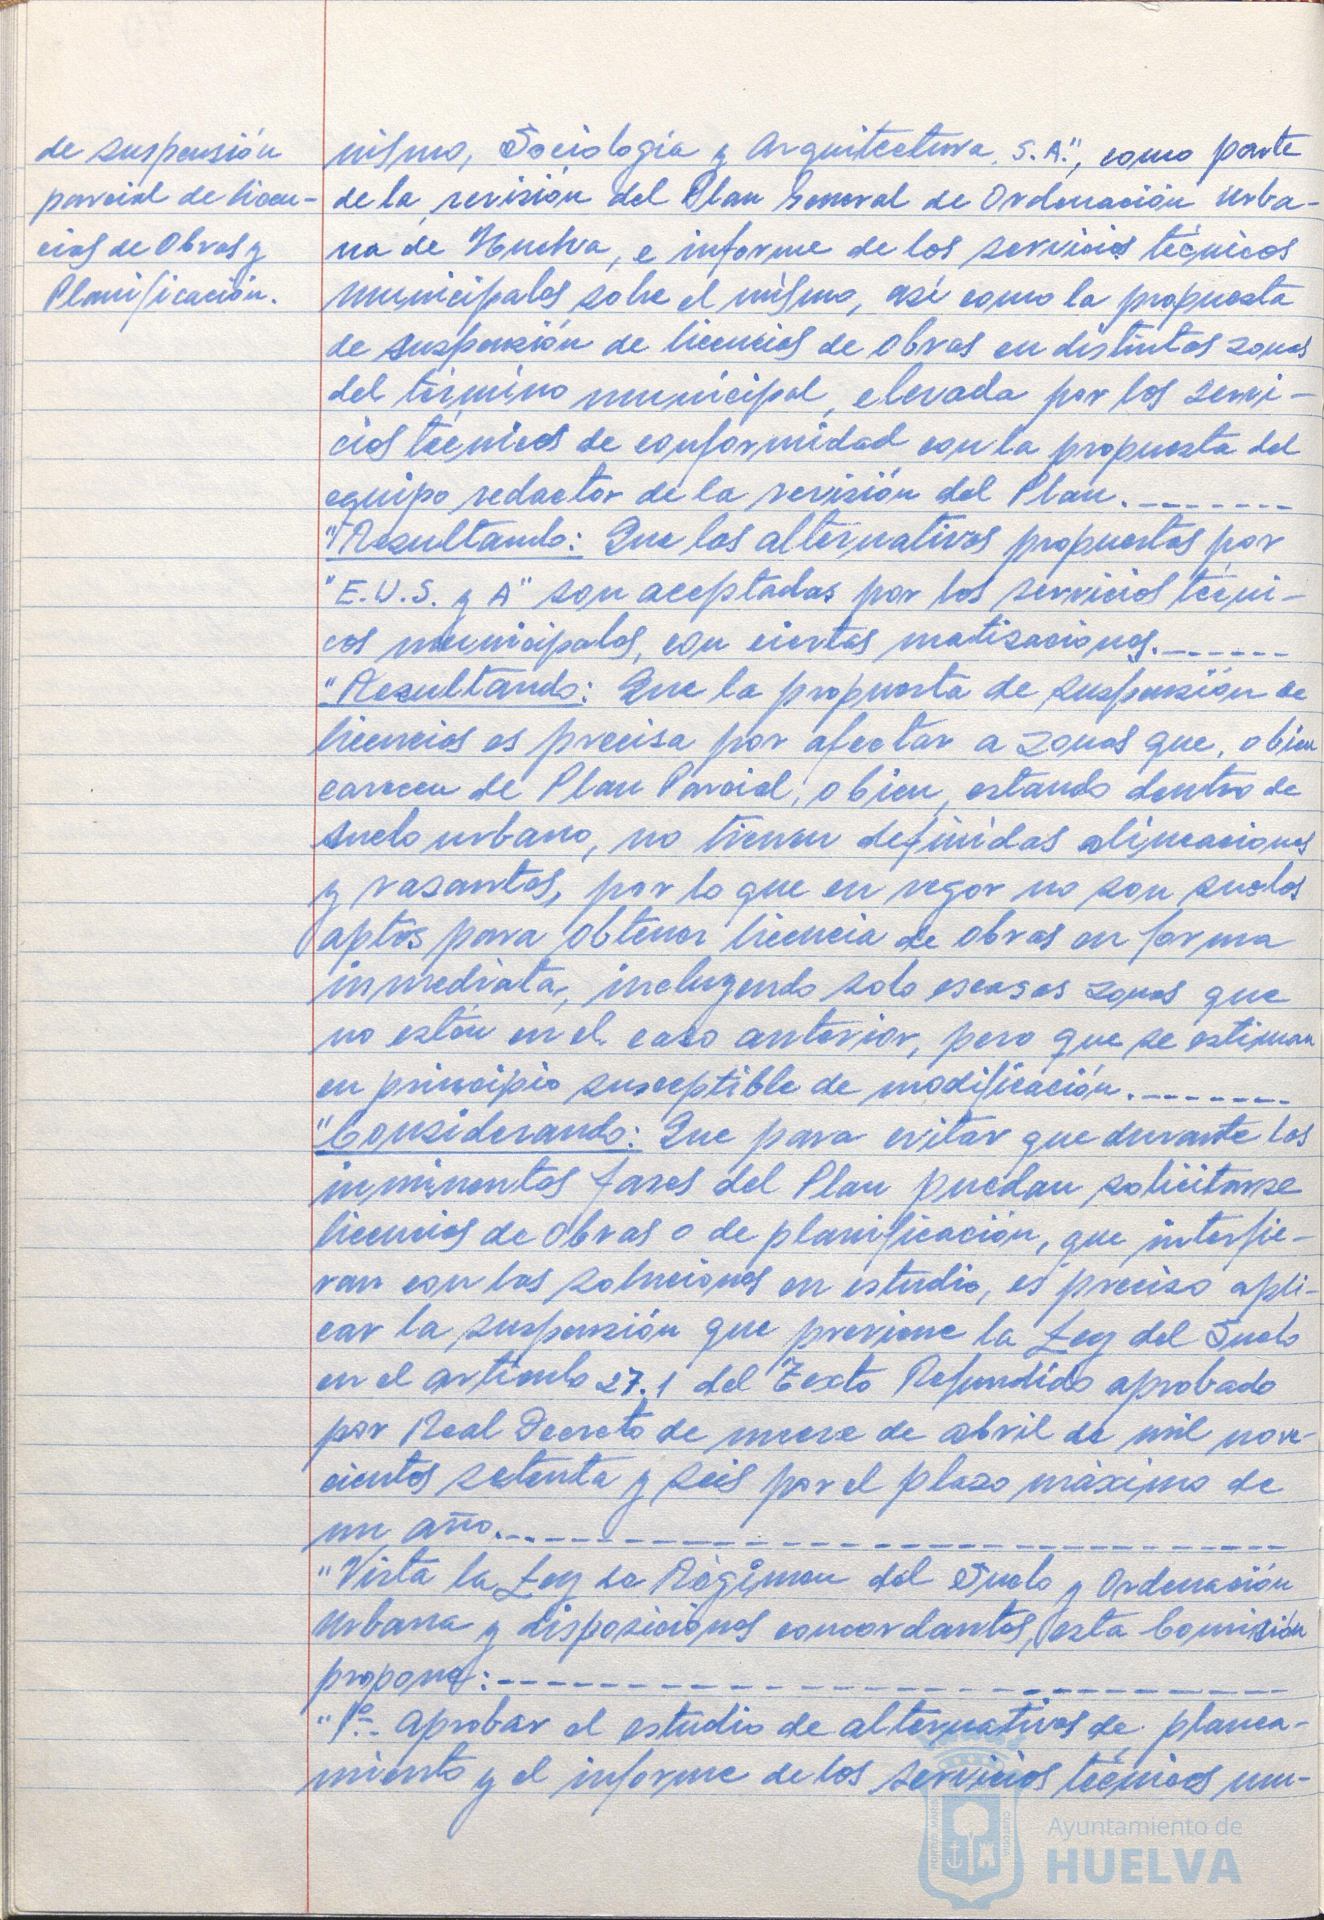 de suspensión
parcial de licen-
cias de Obras y
Planificación.
nismo, Sociología y Arquitectura, S.A.", como parte
de la revisión del Plan General de Ordenación Urba-
na de Huelva, e informe de los servicios técnicos
municipales sobre el mismo, así como la propuesta
de suspensión de licencias de obras en distintas zonas
del término municipal, elevada por los servi-
cios técnicos de conformidad con la propuesta del
equipo redactor de la revisión del Plan.-------
"Resultando: Que las alternativas propuestas por
"E.U.S. y A" son aceptadas por los servicios técni-
cos municipales, con ciertas matizaciones.------
"Resultando: Que la propuesta de suspensión de
licencias es precisa por afectar a zonas que, o bien
carecen de Plan Parcial, o bien, estando dentro de
suelo urbano, no tienen definidas alineaciones
y rasantes, por lo que en rigor no son suelos
aptos para obtener licencia de obras en forma
inmediata, incluyendo solo escasas zonas que
no están en el caso anterior, pero que se estiman
en principio susceptible de modificación.-------
"Considerando: Que para evitar que durante las
inminentes fases del Plan puedan solicitarse
licencias de Obras o de planificación, que interfie-
ran con las soluciones en estudio, es preciso apli-
car la suspensión que previene la Ley del Suelo
en el artículo 27.1 del Texto Refundido aprobado
por Real Decreto de nueve de abril de mil nove-
cientos setenta y seis por el plazo máximo de
un año.-------------------------------
"Vista la Ley de Régimen del Suelo y Ordenación
Urbana y disposiciones concordantes, esta Comisión
propone:-------------------------------
"1º.- Aprobar el estudio de alternativas de planea-
miento y el informe de los servicios técnicos mu-
Ayuntamiento de
HUELVA